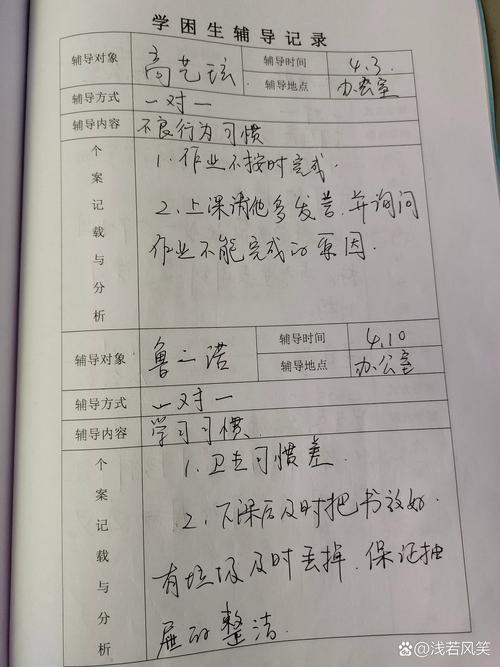 学困生辅导记录
辅导对象 高艺玹 辅导时间 4.3
辅导地点 办公室
辅导方式 一对一
辅导内容 不良行为习惯
个案记载与分析
1.作业不按时完成.
2.上课请他多发言,并询问
作业不能完成的原因.
辅导对象 鲁之诺 辅导时间 4.10
辅导地点 办公室
辅导方式 一对一
辅导内容 学习习惯.
个案记载与分析
1.卫生习惯差.
2.下课后及时把书放好.
有垃圾及时丢掉.保证抽
屉的整洁.
@浅若风笑